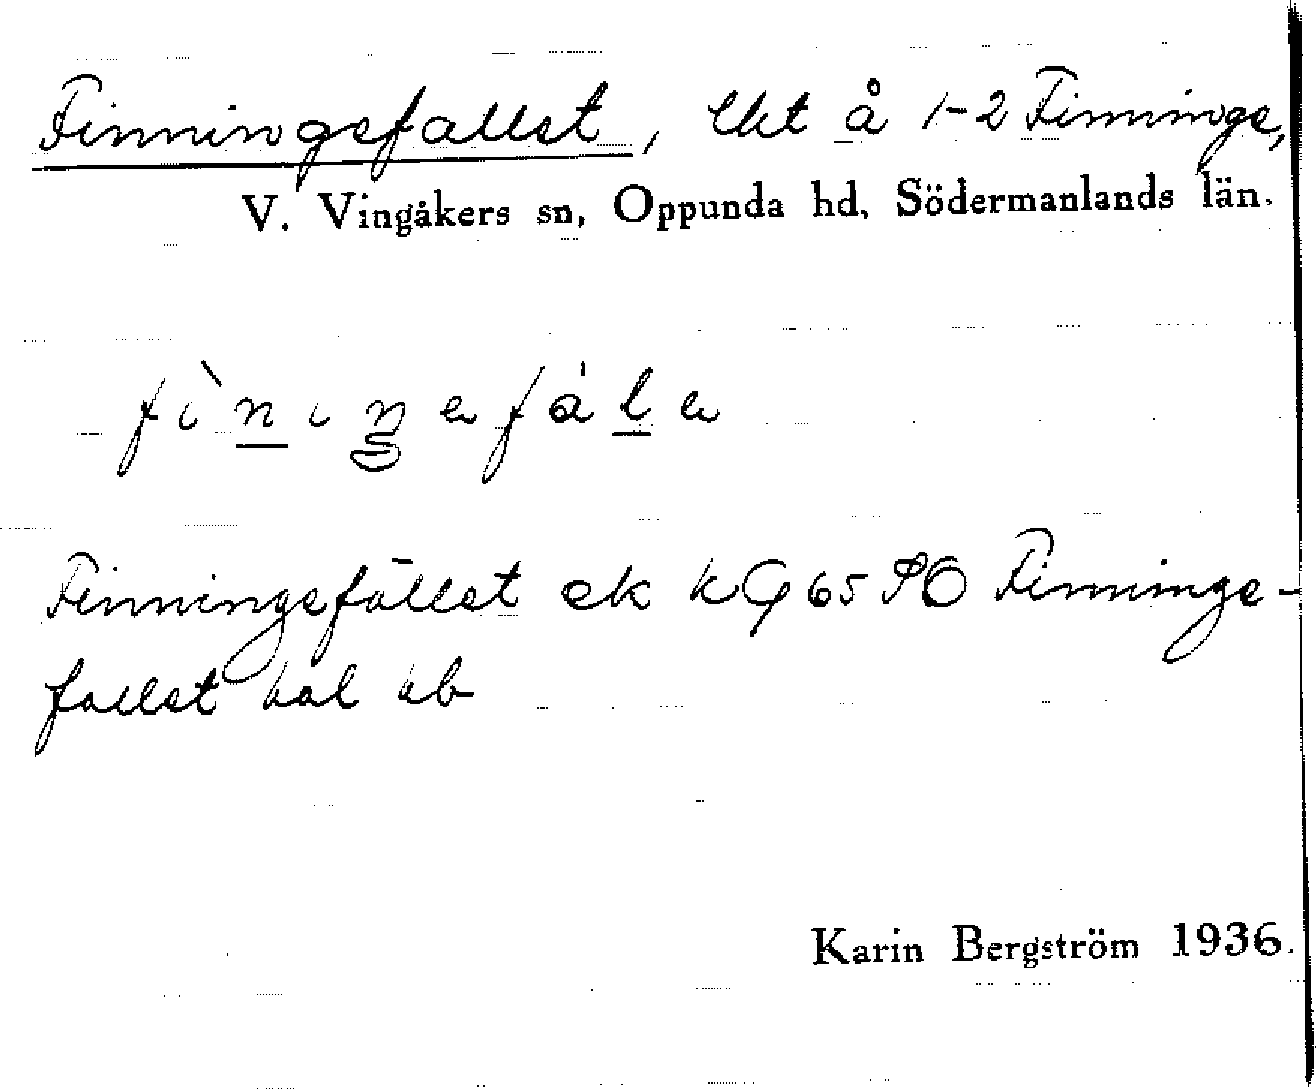 Finningefallet, lht å 1-2 Finninge,
V. Vingåkers sn, Oppunda hd, Södermanlands län.
fìniŋefál̲e
Finningefället ek kG 65 SO Finninge-
fallet bal ab
Karin Bergström 1936.